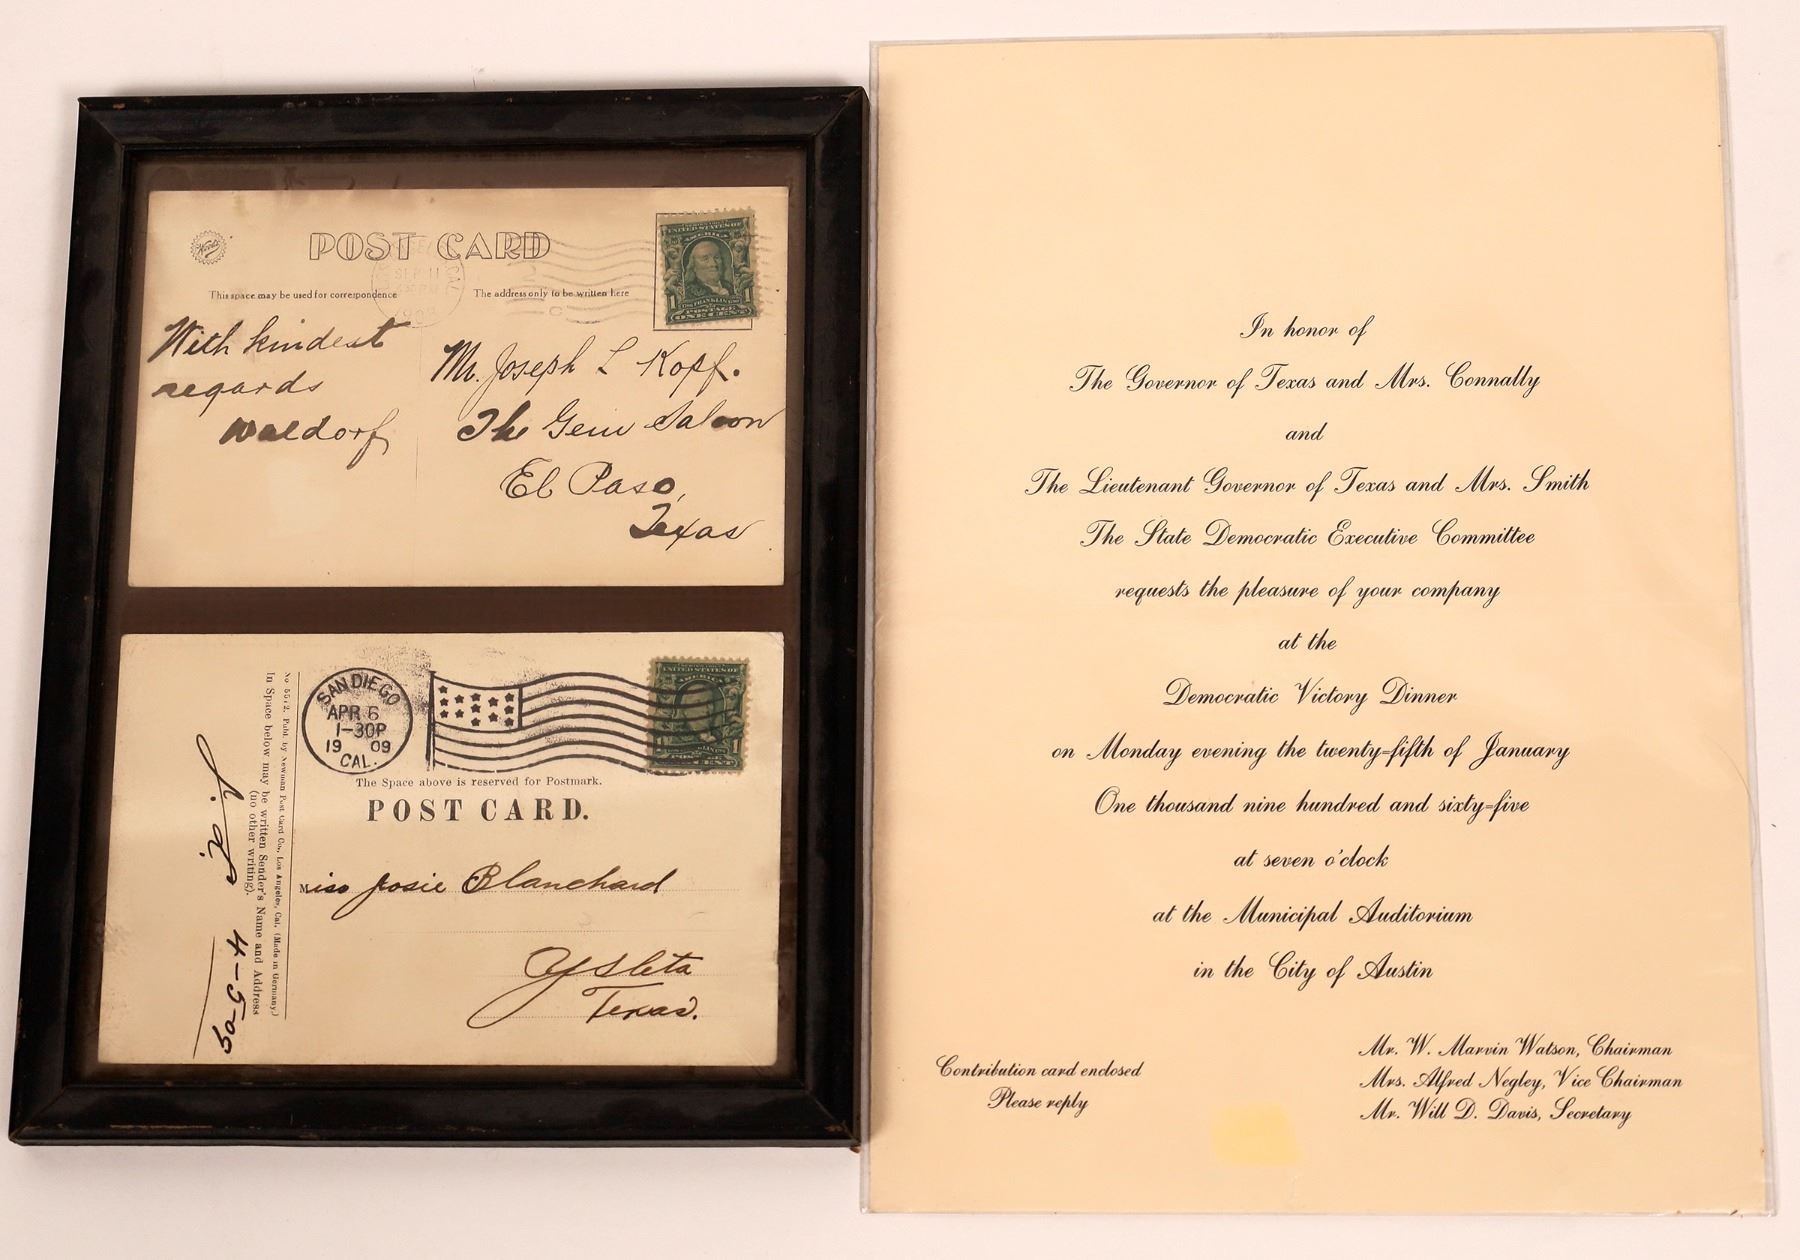 POST CARD
This space may be used for correspondence
The address only to be written here
SEP 11
CAL
UNITED STATES OF
AMERICA
1 FRANKLIN 1
POSTAGE
ONE CENT
With kindest
regards
Waldorf
Mr. Joseph L Kopf.
The Gem Saloon
El Paso,
Texas
SAN DIEGO
APR 6
1-30P
19 09
CAL.
UNITED STATES OF
AMERICA
1
POSTAGE
ONE CENT
The Space above is reserved for Postmark.
POST CARD.
Miss Josie Blanchard
Ysleta
Texas.
No 5572. Publ. by Newman Post Card Co., Los Angeles, Cal. (Made in Germany.)
In Space below may be written Sender's Name and Address
(no other writing).
4-5-09
In honor of
The Governor of Texas and Mrs. Connally
and
The Lieutenant Governor of Texas and Mrs. Smith
The State Democratic Executive Committee
requests the pleasure of your company
at the
Democratic Victory Dinner
on Monday evening the twenty=fifth of January
One thousand nine hundred and sixty=five
at seven o'clock
at the Municipal Auditorium
in the City of Austin
Contribution card enclosed
Please reply
Mr. W. Marvin Watson, Chairman
Mrs. Alfred Negley, Vice Chairman
Mr. Will D. Davis, Secretary